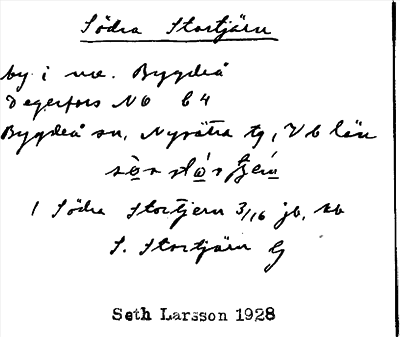 Södra Stortjärn
by i nv. Bygdeå
Degerfors NO 64
Bygdeå sn, Nysätra tg, Vb län
1 Södra Stortjern 3/16 jb, sb
S. Stortjärn G
Seth Larsson 1928